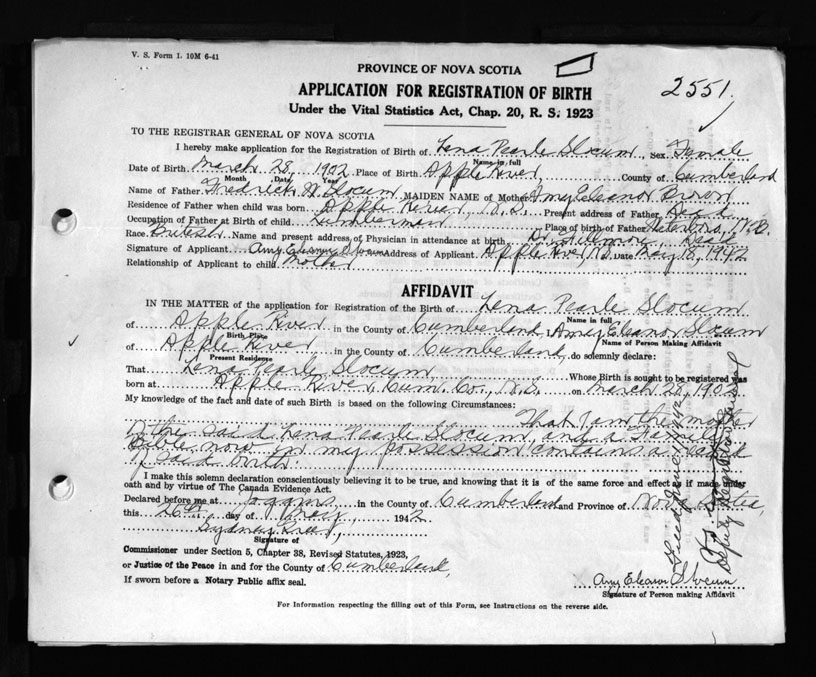 V. S. Form 1. 10M 6-41
PROVINCE OF NOVA SCOTIA
2551
APPLICATION FOR REGISTRATION OF BIRTH
Under the Vital Statistics Act, Chap. 20, R. S. 1923
TO THE REGISTRAR GENERAL OF NOVA SCOTIA
I hereby make application for the Registration of Birth of Lena Pearle Slocum, Sex Female
Name in full
Date of Birth March 28, 1902 Place of Birth Apple River, County of Cumberland
Month Date Year
Name of Father Fredrick W Slocum MAIDEN NAME of Mother Amy Eleanor Brown
Residence of Father when child was born Apple River, N.S. Present address of Father Dead
Occupation of Father at Birth of child Lumberman Place of birth of Father N.B.
Race British Name and present address of Physician in attendance at birth Dr. Dead
Signature of Applicant Amy Eleanor Slocum Address of Applicant Apple River, N.S. Date May 18, 1942
Relationship of Applicant to child Mother
AFFIDAVIT
IN THE MATTER of the application for Registration of the Birth of Lena Pearle Slocum
Name in full
of Apple River in the County of Cumberland I, Amy Eleanor Slocum
Birth Place Name of Person Making Affidavit
of Apple River in the County of Cumberland, do solemnly declare:
Present Residence
That Lena Pearle Slocum Whose Birth is sought to be registered was
born at Apple River, Cum. Co., N.S. on March 28, 1902
My knowledge of the fact and date of such Birth is based on the following Circumstances:
That I am the mother
of the said Lena Pearle Slocum and a Family
Bible now in my possession contains a record
of said birth.
I make this solemn declaration conscientiously believing it to be true, and knowing that it is of the same force and effect as if made under
oath and by virtue of The Canada Evidence Act.
Declared before me at Joggins in the County of Cumberland and Province of Nova Scotia,
this day of May, 1942
Sydney
Signature of
Commissioner under Section 5, Chapter 38, Revised Statutes, 1923,
or Justice of the Peace in and for the County of Cumberland,
If sworn before a Notary Public affix seal.
Amy Eleanor Slocum
Signature of Person making Affidavit
For Information respecting the filling out of this Form, see Instructions on the reverse side.
Deputy Registrar General